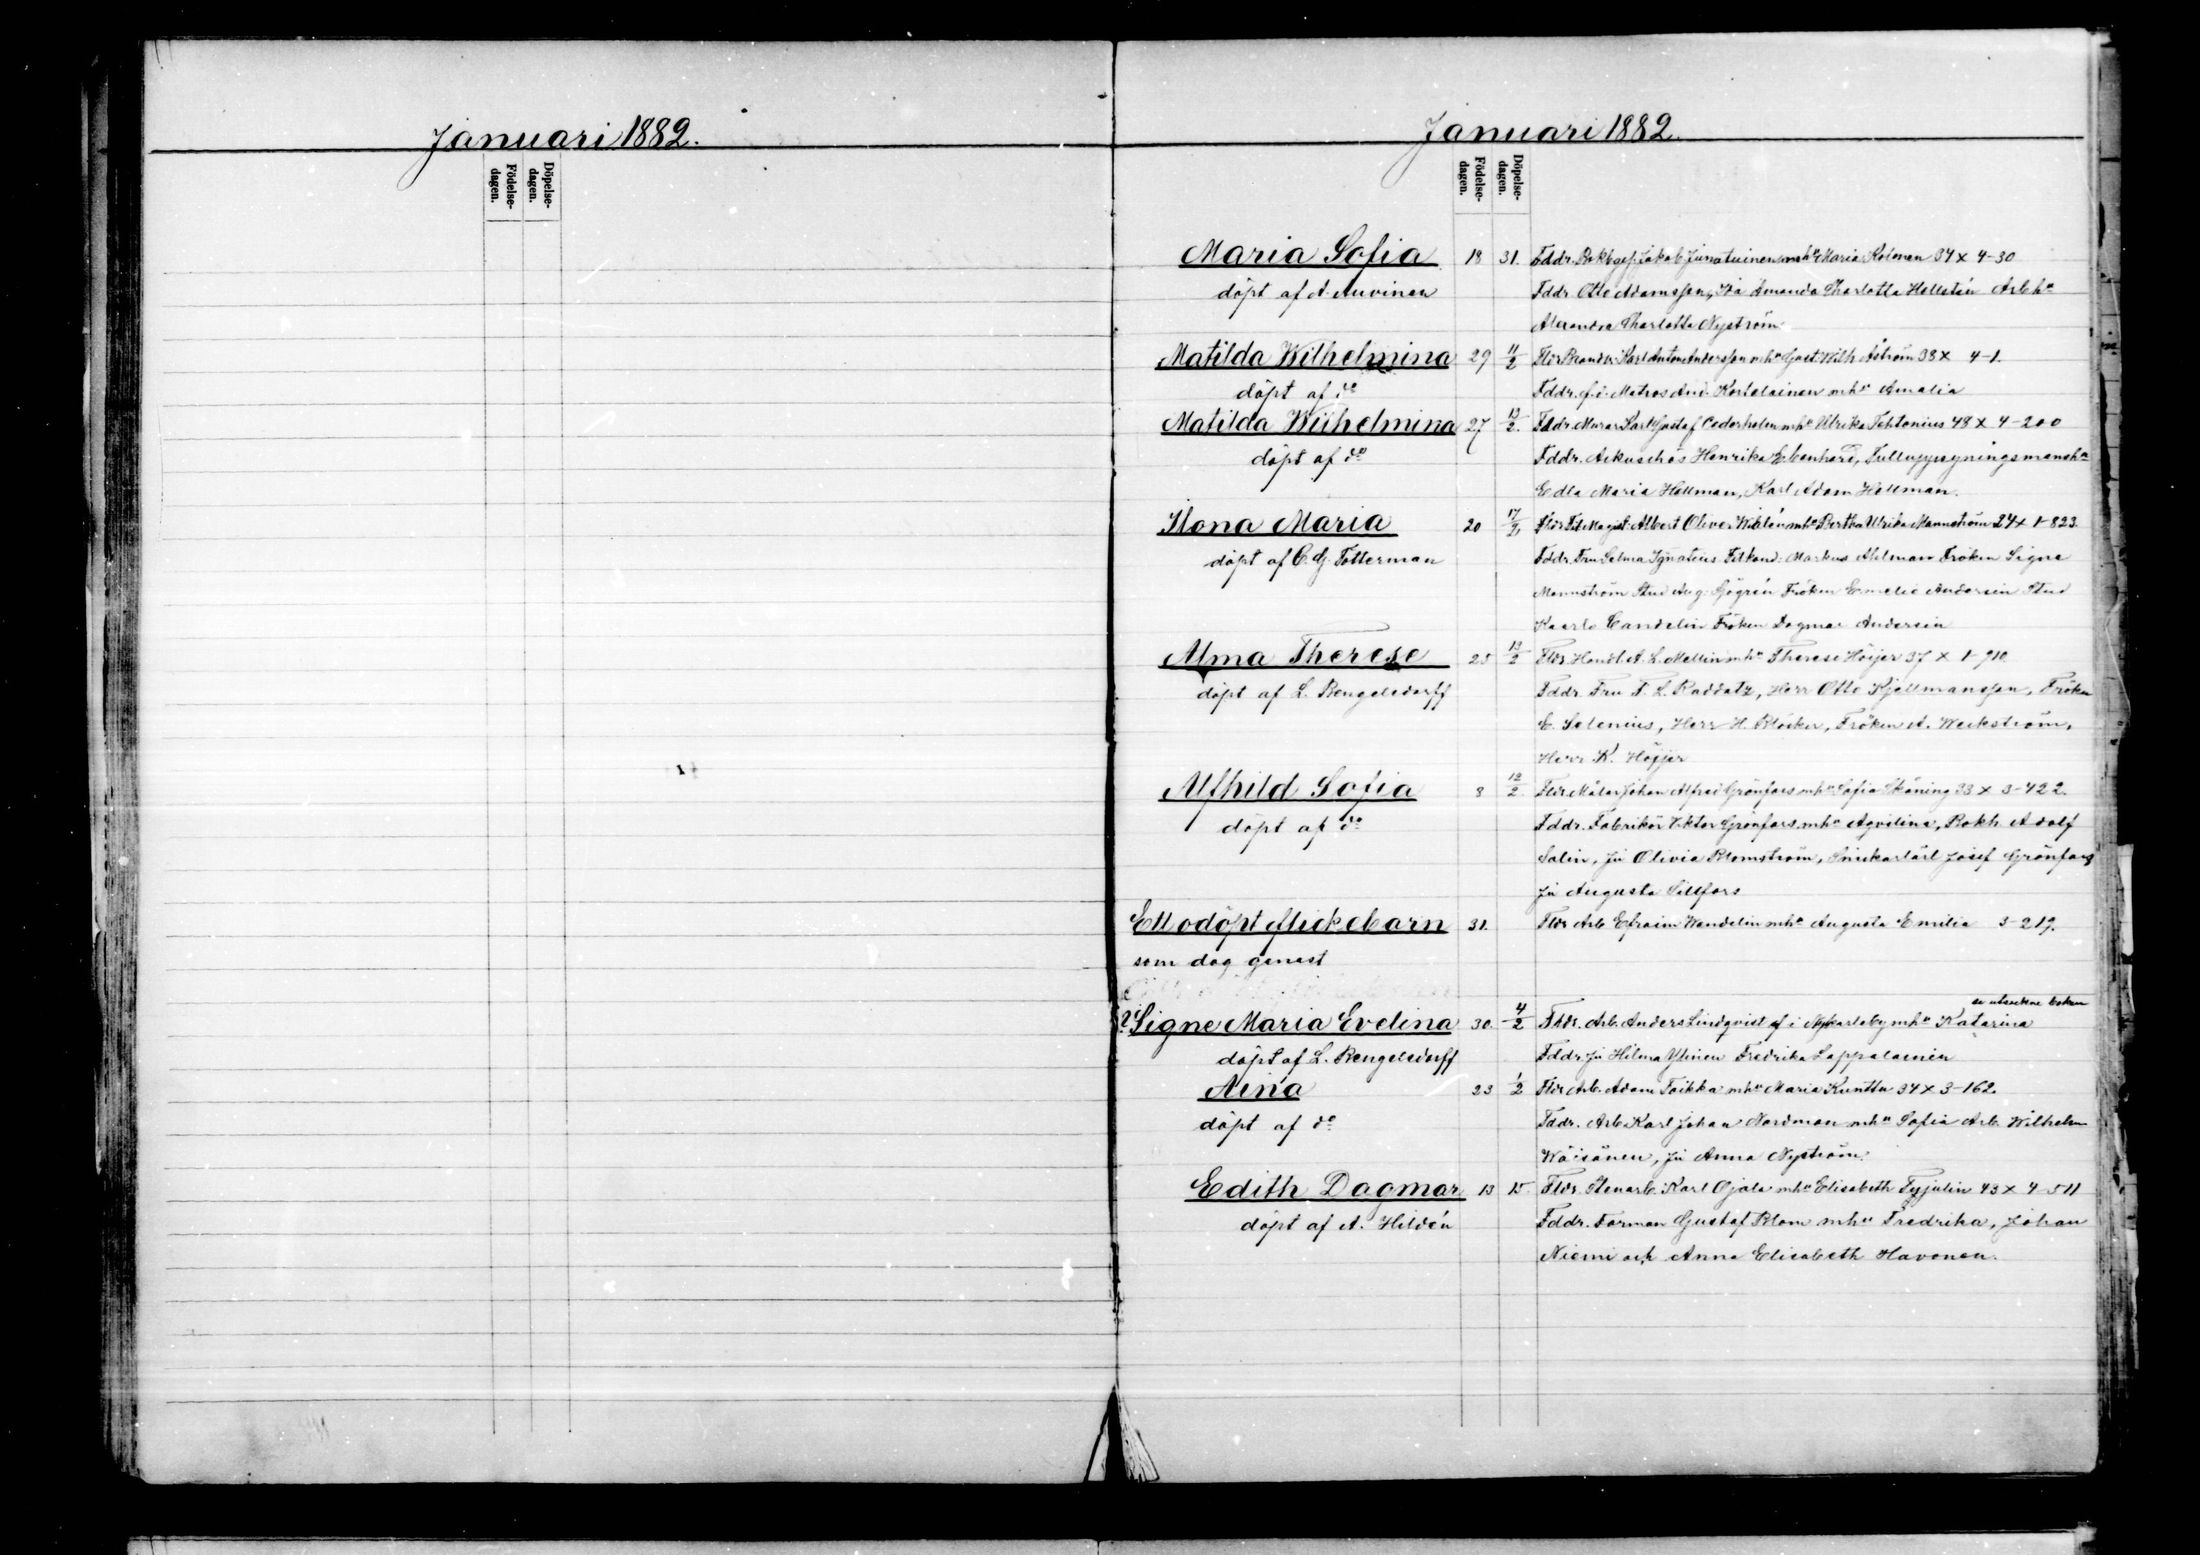 Januari 1882.
Födelse-
dagen.
Döpelse-
dagen.
Januari 1882.
Födelse-
dagen.
Döpelse-
dagen.
Maria Sofia 18 31. Jakob mhu Maria 34 x 4-30
döpt af A. Auvinen Fddr. Otto Adamsson, Amanda Charlotta Hellstén
Alexandra Charlotta Nyström
Matilda Wilhelmina 29 11/2 Karl Anton Andersson mhu Gust. Wilh Åström 38 x 4-1.
döpt af do Fddr. Matros And. Kortelainen mhu Amalia
Matilda Wilhelmina 27 13/2. Fddr. Murar Karl Gustaf Cederholm mhu Ulrika 48 x 4-200
döpt af do Fddr. Henrika
Edla Maria Hellman, Karl Adam Hellman.
Ilona Maria 20 17/2. Albert Oliver mhu Bertha Ulrika Mannström 24 x 1-823.
döpt af C. G. Totterman Fddr. Fru Selma Ignatius Markus Ahlman Fröken Signe
Mannström Stud Aug. Sjögrén Fröken Emelie Andersin Stud
Kaarlo Candelin Fröken Dagmar Andersin
Alma Therese 25 13/2 Fldr. Handl. A. L. Mellin mhu Therese Höijer 37 x 1-910.
döpt af L. Bengelsdorff Fddr. Fru T. L. Raddatz, Herr Otto Kjellmansson, Fröken
E. Selenius, Herr H. Blöcker, Fröken A. Weckström,
Herr K. Höijer
Alfhild Sofia 8 12/2. Fldr. Målar Johan Alfred Grönfors mhu Sofia Skåning 33 x 3-422.
döpt af do Fddr. Fabrikör Viktor Grönfors mhu Aqvilina, Bokh. Adolf
Salin, Ju Olivia Blomström, Josef Grönfors
Ju Augusta Sillfors
Ett odöpt flickebarn 31. Fldr Arb Efraim Wendelin mhu Augusta Emilia 3-219.
som dog genast
se utsockne boken
? Signe Maria Evelina 30. 4/2 Fldr. Arb. Anders Lindqvist mhu Katarina
döpt af L. Bengelsdorff Fddr. Ju Hilma Ylinen Fredrika Lappalainen
Aina 23 1/2 Fldr Arb. Adam Toikka mhu Maria Kunttu 34 x 3-162.
döpt af do Fddr. Arb. Karl Johan Nordman mhu Sofia Arb. Wilhelm
Wäisänen, Ju Anna Nyström.
Edith Dagmar 13 15. Fldr. Stenarb. Karl Ojala mhu Elisabeth 43 x 4-511
döpt af A. Hildén Fddr. Forman Gustaf Blom mhu Fredrika, Johan
Niemi och Anna Elisabeth Havonen.